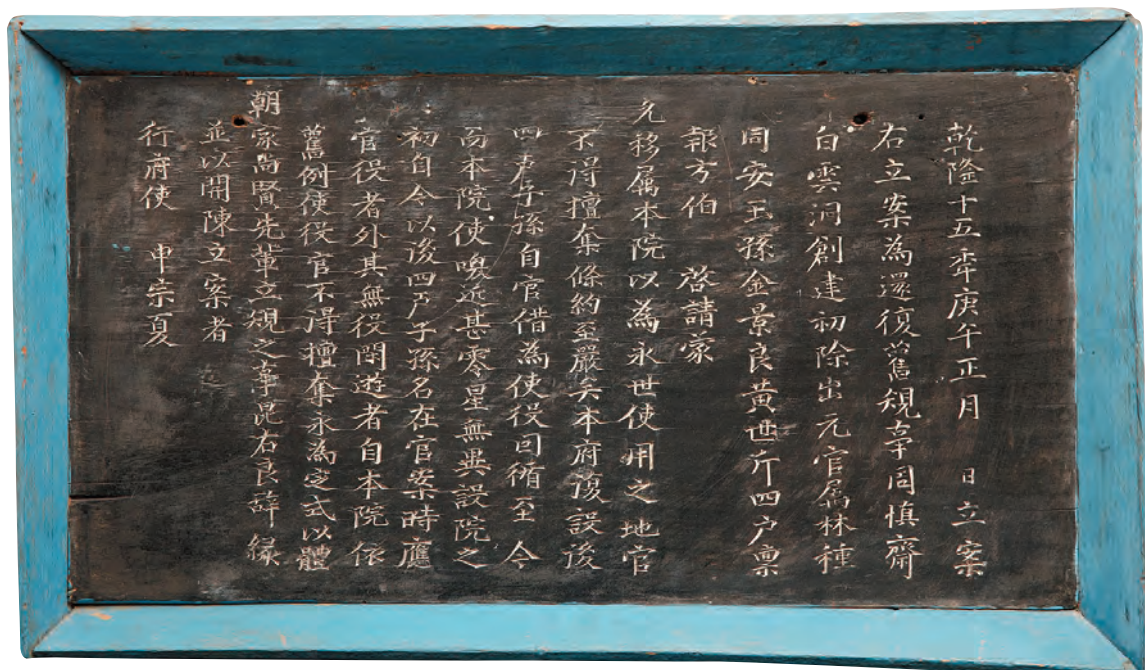 乾隆十五年庚午正月 日立案
右立案為還復舊規事周慎齋
白雲洞創建初除出元官属林種
同安玉孫金景良黃世斤四户禀
報方伯 啓請蒙
允移属本院以為永世使用之地官
不得擅奪條約至嚴矣本府復設後
四户子孫自官借為使役因循至今
而本院使喚近甚零星無異設院之
初自今以後四户子孫名在官案時應
官役者外其無役閑遊者自本院依
舊例使役官不得擅奪永為定式以體
朝家尚賢先輩立規之事是右良辞緣
並以開陳立案者
行府使 申宗夏